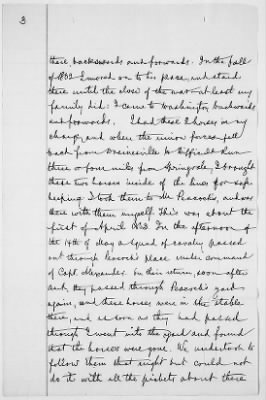 3
there backwards and forwards. In the fall
of 1862 I moved on to his place, and staid
there until the close of the war - at least my
family did: I came to Washington backwards
and forwards. I had these 2 horses in my
charge, and when the union forces fell
back from Drainesville to Difficult Run
three or four miles from Springvale, I brought
these two horses inside of the lines for safe
keeping I took them to Mr. Peacock's, and was
there with them myself. This was about the
first of April 1863. In the afternoon of
the 14th of May a squad of cavalry passed
out through Peacock's place under command
of Capt. Alexander. On their return, soon after
dark, they passed through Peacock's yard
again, and these horses were in the stable
there, and as soon as they had passed
through I went into the yard and found
that the horses were gone. We undertook to
follow them that night but could not
do it with all the pickets about there